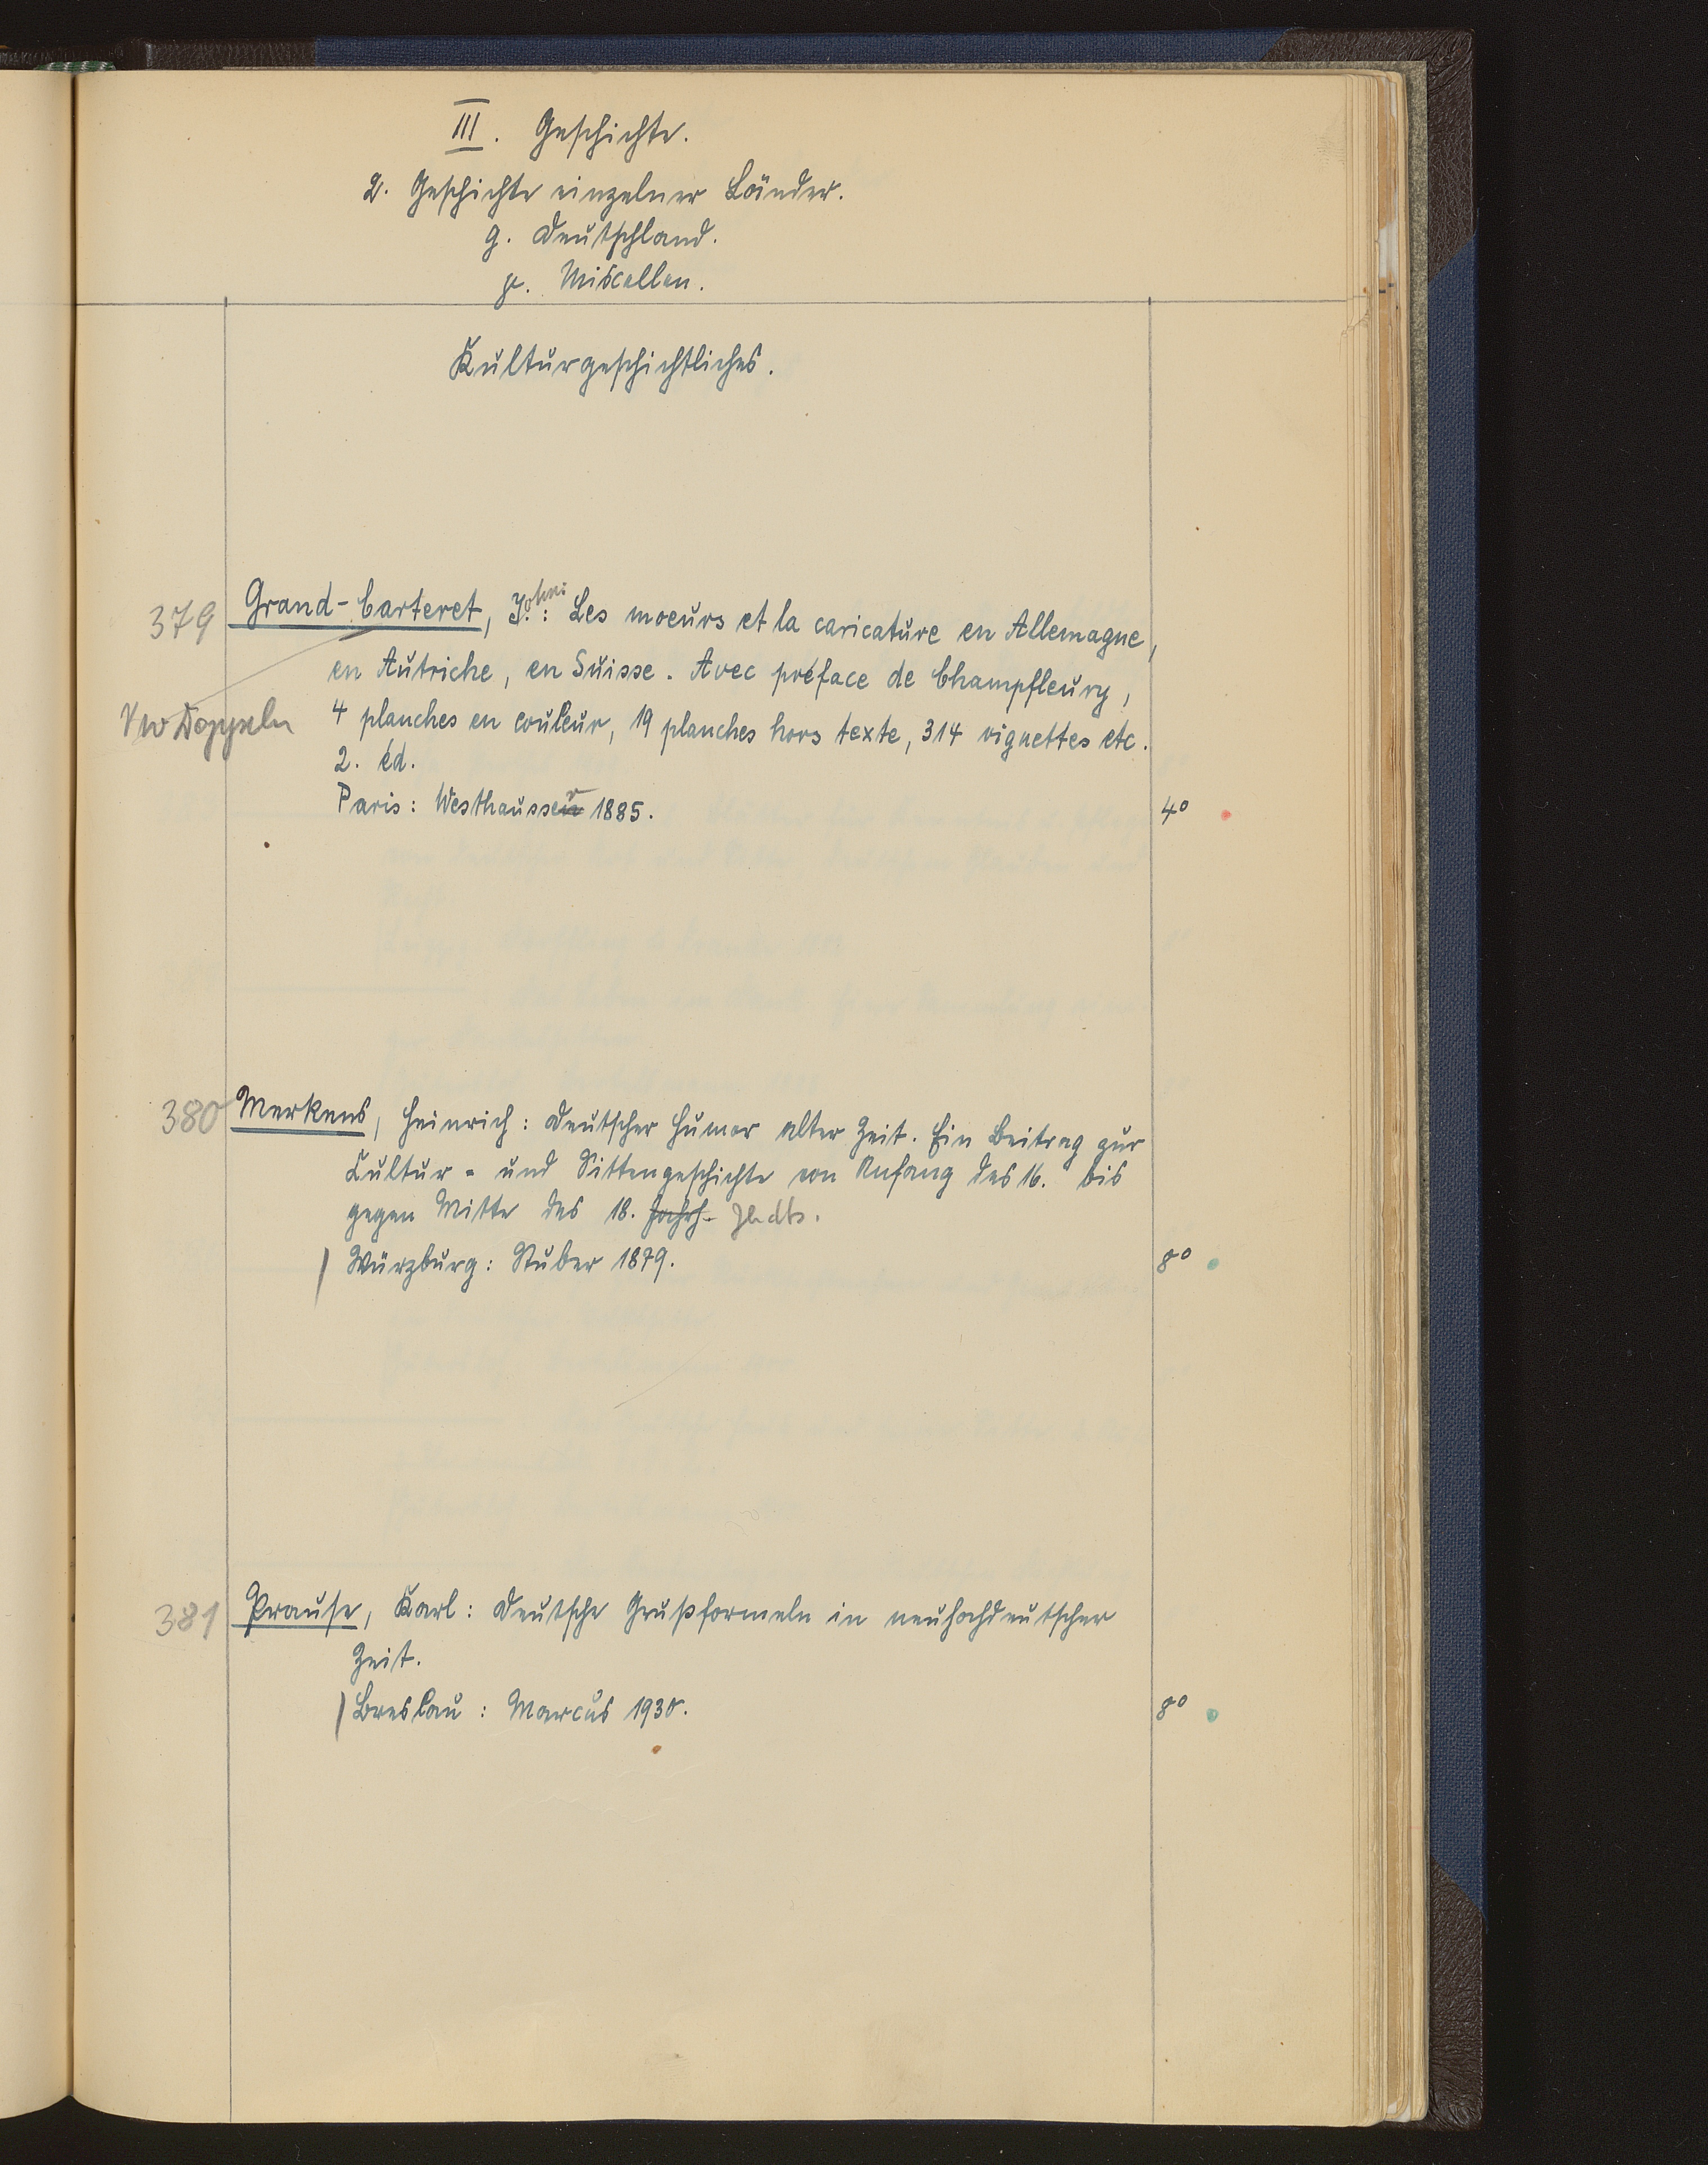 III. Geschichte.
2. Geschichte einzelner Länder.
g. Deutschland.
γ. Miscellen.
Kulturgeschichtliches.
379 Grand-Carteret, John: Les moeurs et la caricature en Allemagne,
en Autriche, en Suisse. Avec préface de Champfleury,
4 planches en couleur, 19 planches hors texte, 314 vignettes etc.
Doppeln
2. éd.
Paris: Westhausser 1885. 4°
380 Merkens, Heinrich: Deutscher Humor alter Zeit. Ein Beitrag zur
Kultur- und Sittengeschichte von Anfang des 16. bis
gegen Mitte des 18. Jahrh. Jhdts.
Würzburg: Stuber 1879. 8°
381 Prause, Karl: Deutsche Grußformeln in neuhochdeutscher
Zeit.
Breslau: Marcus 1930. 8°